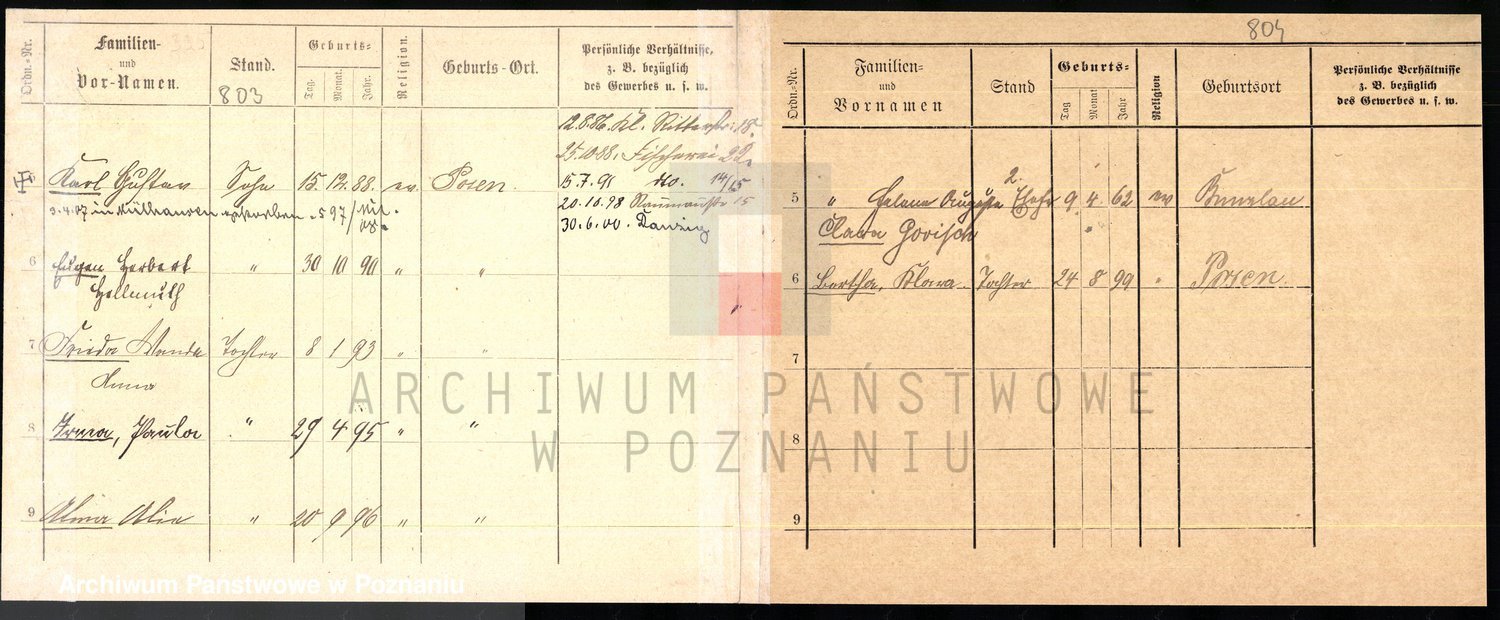 Ordn.-Nr.
Familien-
und
Vor-Namen.
Stand.
803
Geburts-
Tag.
Monat.
Jahr.
Religion.
Geburts-Ort.
Persönliche Verhältnisse,
z. B. bezüglich
des Gewerbes u. s. w.
12.8.86. Kl. Ritterstr. 18.
25.10.88. Fischerei 22.
Karl Gustav Sohn 15. 12. 88. ev. Posen. 15.7.91 do. 14/15
3.4.07 in Mülhausen 597/
20.10.98 Naumannstr 15
30.6.00. Danzig
6 Eugen Herbert " 30 10 90 " "
Hellmuth
7 Frieda Wanda Tochter 8 1 93 " "
Anna
8 Irma, Paula " 29 4 95 " "
9 Alma " 20 9 96 " "
804
Ordn.-Nr.
Familien-
und
Vornamen
Stand
Geburts-
Tag
Monat
Jahr
Religion
Geburtsort
Persönliche Verhältnisse
z. B. bezüglich
des Gewerbes u. s. w.
2.
5 " Helene Auguste Ehefr 9 4 62 ev Bunzlau
Clara
6 Bertha, Klara. Tochter 24 8 99 " Posen.
7
8
9
ARCHIWUM PAŃSTWOWE
W POZNANIU
Archiwum Panstwowe w Poznaniu